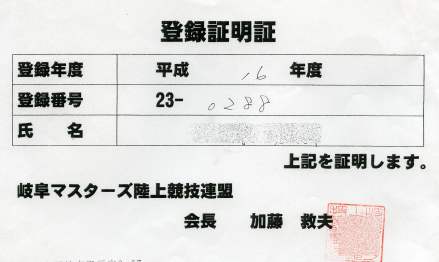 登録証明証
登録年度 平成 16 年度
登録番号 23- 0288
氏 名
上記を証明します。
岐阜マスターズ陸上競技連盟
会長 加藤 救夫